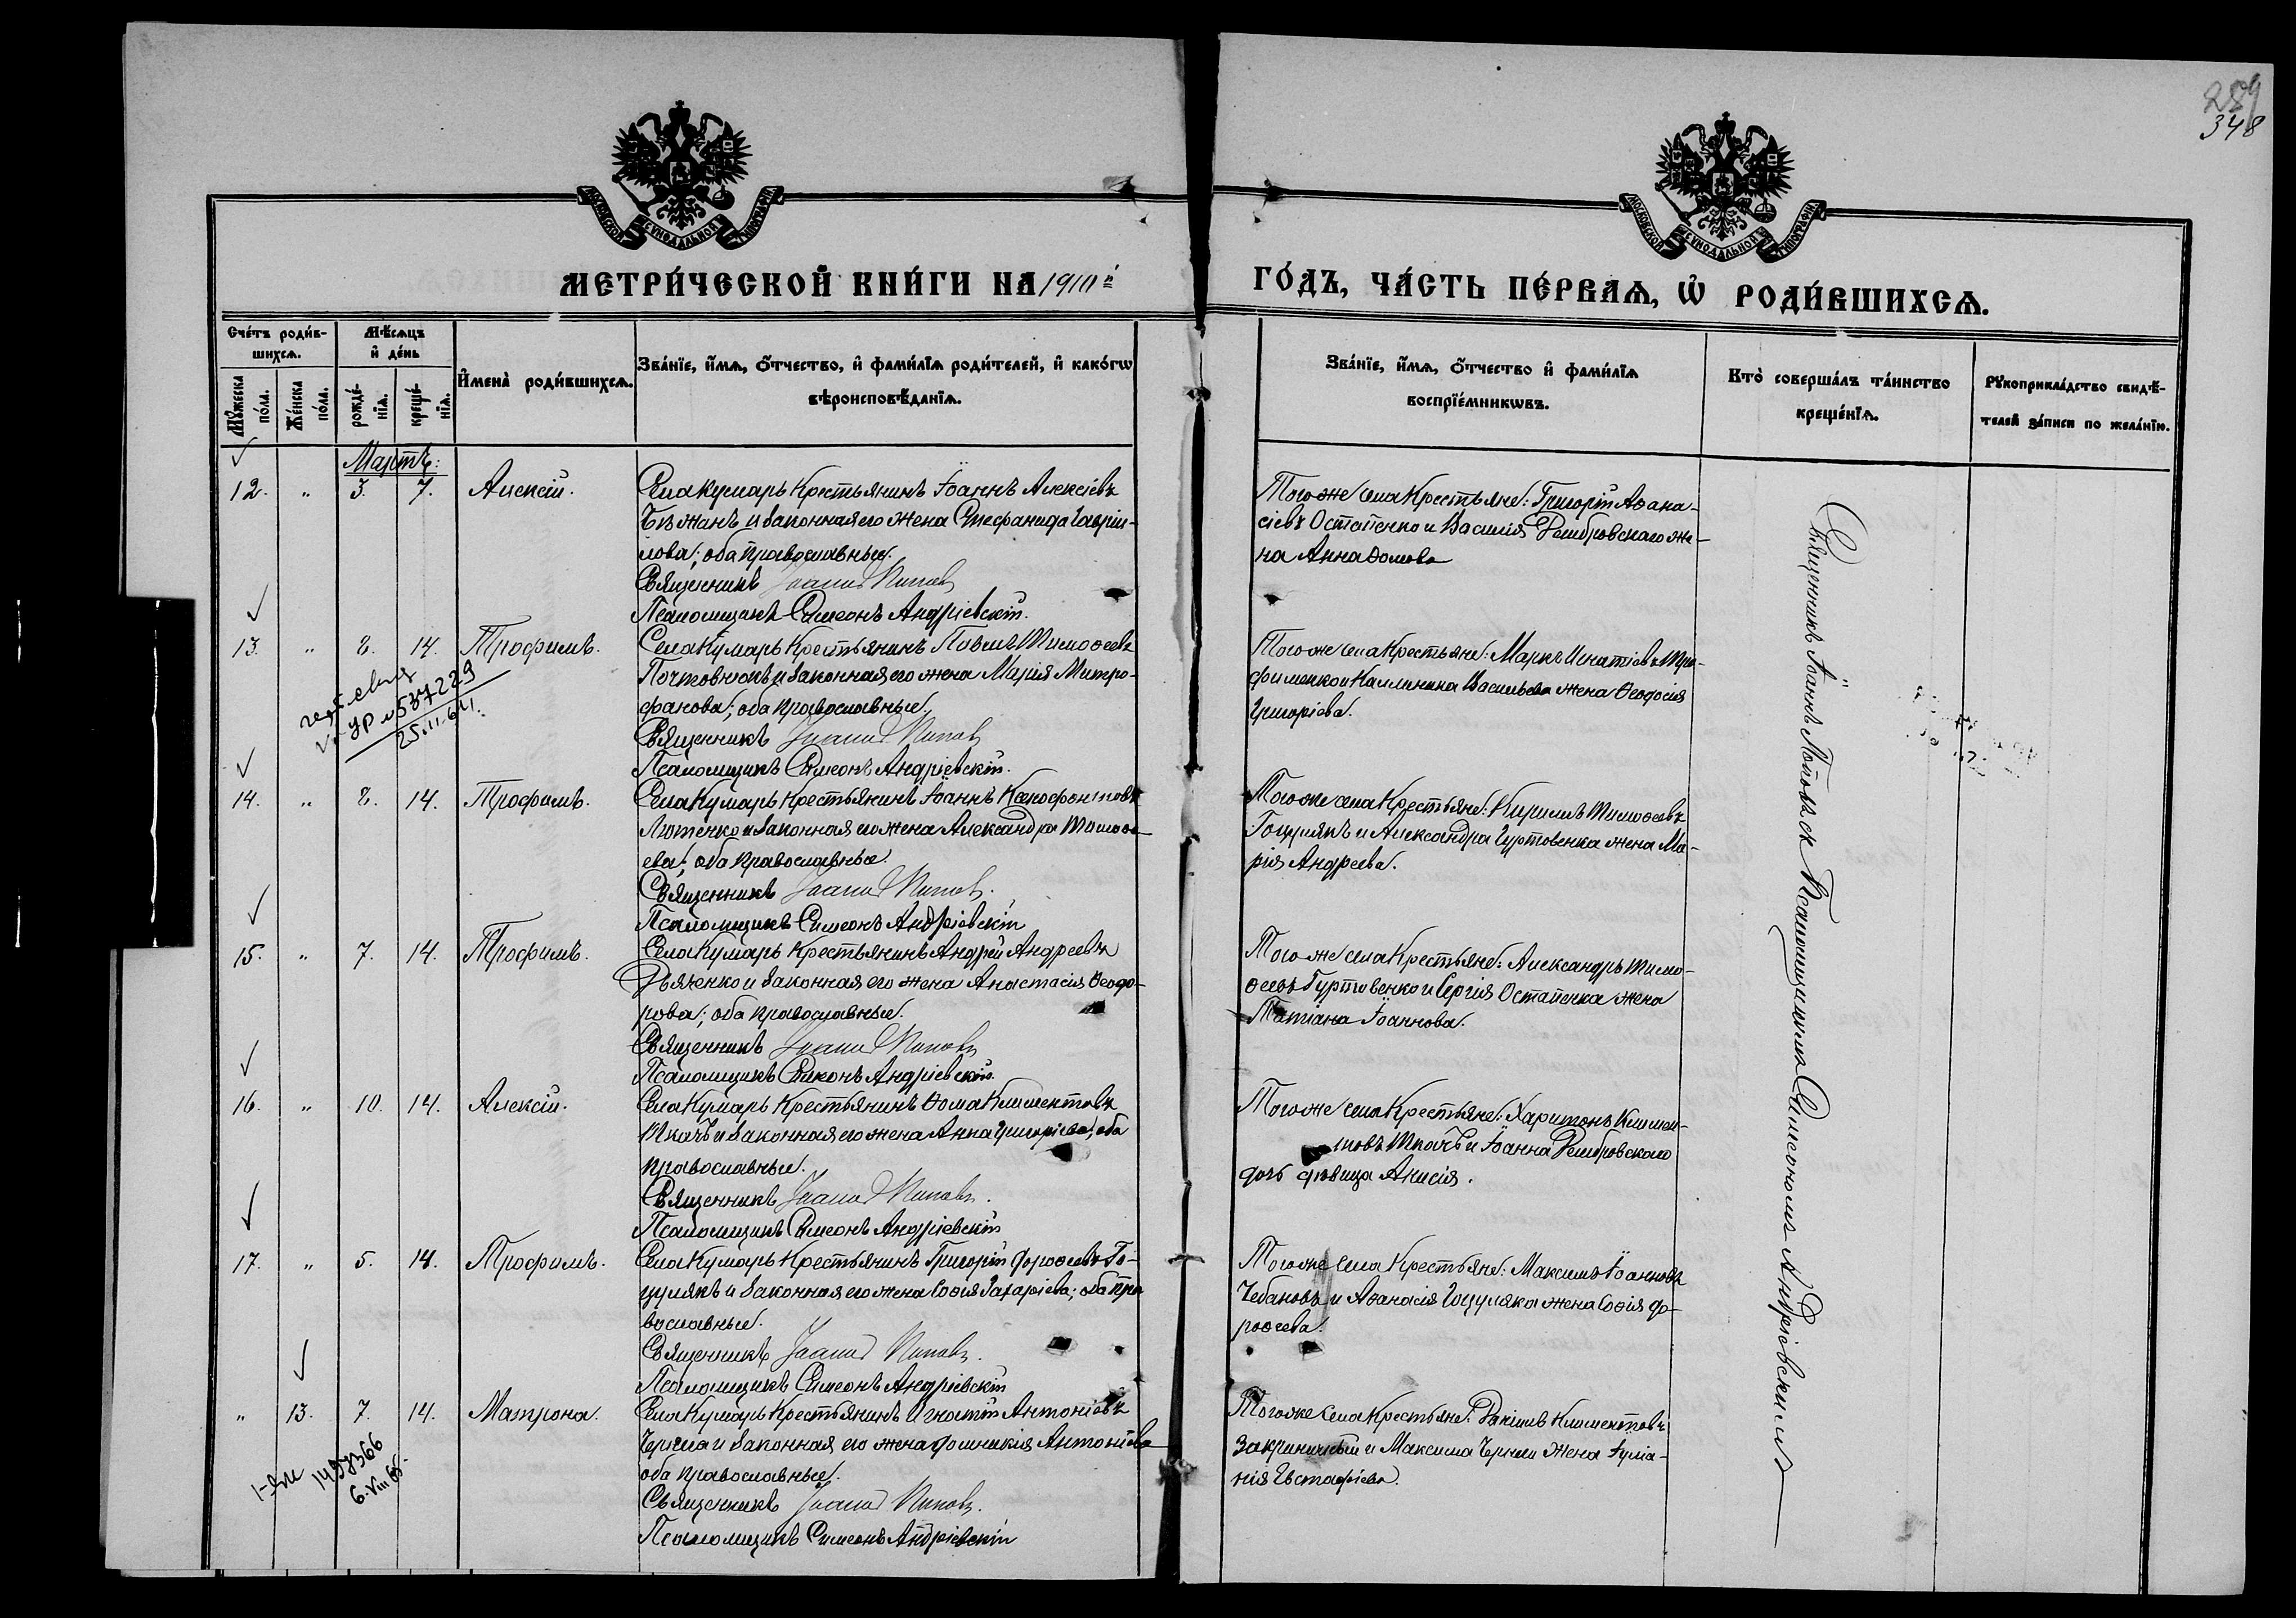 289
348
МОСКОВСКОЙ СѴНОДАЛЬНОЙ ТИПОГРАФІИ
МОСКОВСКОЙ СѴНОДАЛЬНОЙ ТИПОГРАФІИ
МЕТРИ́ЧЕСКОЙ КНИ́ГИ НА 1910й
ГО́ДЪ, ЧА́СТЬ ПЕ́РВАѦ, Ѡ҆ РОДИ́ВШИХСѦ.
Сче́тъ роди́в-
шихсѧ.
Мꙋ́жеска по́ла.
Же́нска по́ла.
Мѣ́сѧцъ
и҆ де́нь
рожде́-
нїѧ.
креще́-
нїѧ.
И҆мена̀ роди́вшихсѧ.
Зва́нїе, и҆́мѧ, ѻ҆́тчество, и҆ фами́лїѧ роди́телей, и҆ како́гѡ
вѣроисповѣ́данїѧ.
Зва́нїе, и҆́мѧ, ѻ҆́тчество и҆ фами́лїѧ
воспрїе́мникѡвъ.
Кто̀ соверша́лъ та́инство
креще́нїѧ.
Рꙋкоприкла́дство свидѣ́-
телей за́писи по жела́нїю.
Мартъ:
12. " 3. 7. Алексій.
Села Кумаръ Крестьянинъ Іоаннъ Алексіевъ
Бѣжанъ и законная его жена Стефанида Гаврiи-
лова; оба православные.
Священникъ Іоаннъ Поповъ
Псаломщикъ Симеонъ Андріевскій.
Того же села Крестьяне: Григорій Аѳана-
сіевъ Остапенко и Василія Домбровскаго же-
на Анна Ѳомова
13. " 2. 14. Трофимъ.
Села Кумаръ Крестьянинъ Павелъ Тимоѳеевъ
Почтовнюкъ и законная его жена Марія Митро-
фанова; оба православные.
Священникъ Іоаннъ Поповъ
Псаломщикъ Симеонъ Андріевскій.
Того же села Крестьяне: Маркъ Игнатіевъ Тро-
фименко и Калинника Васильева жена Ѳеодосія
Григоріева.
537229
25.11.61.
14. " 2. 14. Трофимъ.
Села Кумаръ Крестьянинъ Іоаннъ Ксенофонтовъ
Лютенко и законная его жена Александра Тимоѳе-
ева; оба православные.
Священникъ Іоаннъ Поповъ.
Псаломщикъ Симеонъ Андріевскій
Того же села Крестьяне: Кириллъ Тимоѳеевъ
Гоцулякъ и Александра Гуртовенка жена Ма-
рія Андреева.
15. " 7. 14. Трофимъ.
Села Кумаръ Крестьянинъ Андрей Андреевъ
Дьяченко и законная его жена Анастасія Ѳеодо-
рова; оба православные.
Священникъ Іоаннъ Поповъ
Псаломщикъ Симеонъ Андріевскій.
Того же села Крестьяне: Александръ Тимо-
ѳеевъ Гуртовенко и Сергія Остапенка жена
Татіана Іоаннова.
16. " 10. 14. Алексій.
Села Кумаръ Крестьянинъ Ѳома Климентовъ
Ткачъ и законная его жена Анна Григоріева; оба
православные.
Священникъ Іоаннъ Поповъ.
Псаломщикъ Симеонъ Андріевскій
Того же села Крестьяне: Харитонъ Климен-
товъ Ткачъ и Іоанна Домбровскаго
дочь дѣвица Анисія.
17. " 5. 14. Трофимъ.
Села Кумаръ Крестьянинъ Григорій Дороѳеевъ Го-
цулякъ и законная его жена Софія Захаріева; оба пра
вославные.
Священникъ Іоаннъ Поповъ.
Псаломщикъ Симеонъ Андріевскій
Того же села Крестьяне: Максимъ Іоанновъ
Чебановъ и Аѳанасія Гоцуляка жена Софія До-
роѳеева.
" 13. 7. 14. Матрона.
Села Кумаръ Крестьянинъ Игнатій Антоніевъ
Черней и законная его жена Домникія Антоніева
оба православные.
Священникъ Іоаннъ Поповъ.
Псаломщикъ Симеонъ Андріевскій
Того же села Крестьяне: Даніилъ Климентовъ
Закриничный и Максима Чернея жена Іуліа-
нія Евстафіева.
6.VIII 65.
Священникъ Іоаннъ Поповъ съ Псаломщикомъ Симеономъ Андріевскимъ